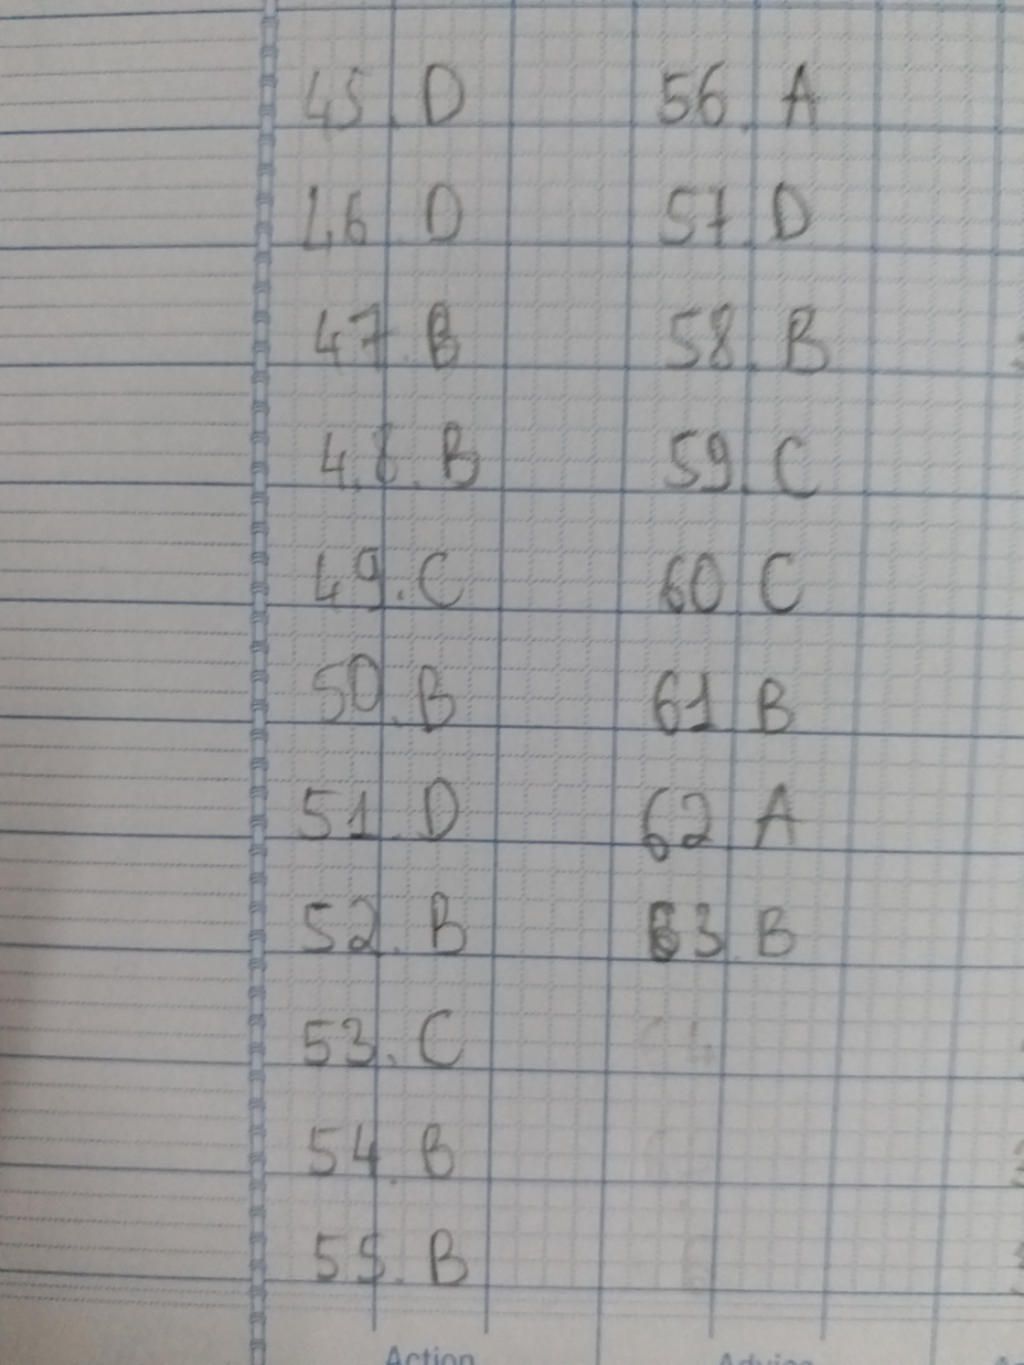 45. D
46 D
47. B
48. B
49. C
50. B
51. D
52. B
53. C
54. B
55. B
56. A
57. D
58. B
59. C
60 C
61 B
62 A
63. B
Action